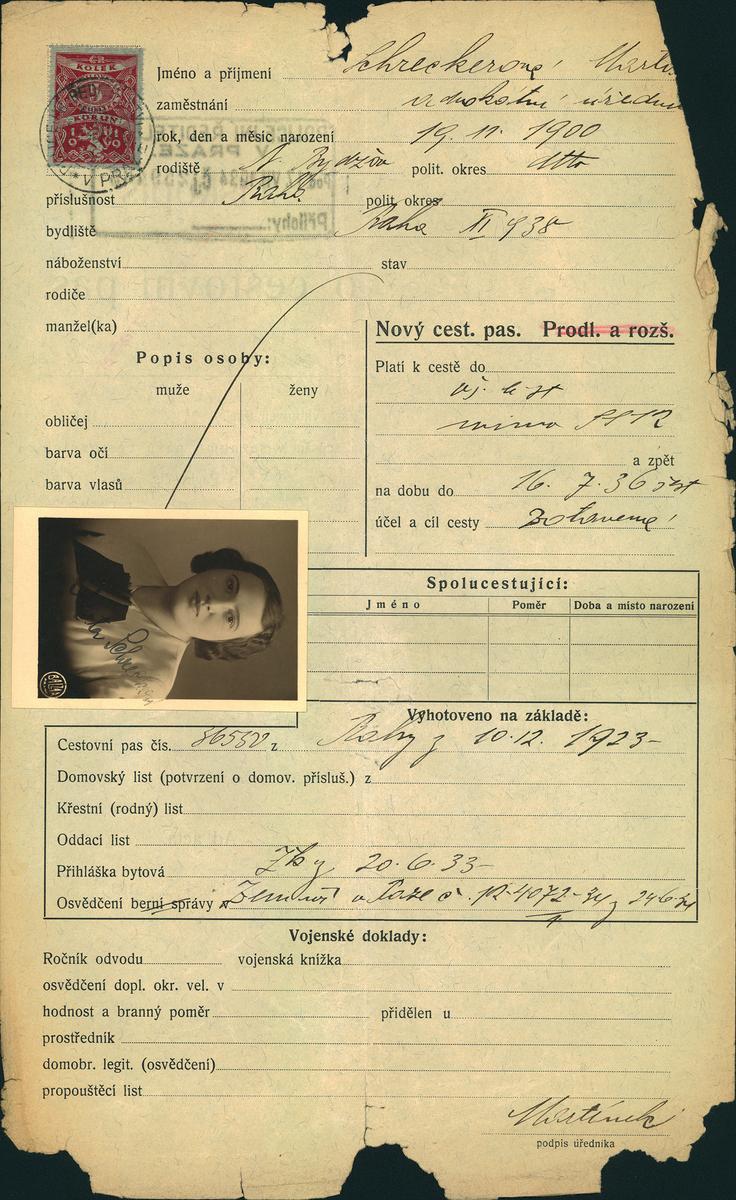 KOLEK
KORUN
V PRAZE
Jméno a příjmení Schreckerová Marta
zaměstnání
rok, den a měsíc narození 19. 11. 1900
rodiště N. Bydžov polit. okres dtto
příslušnost Praha polit. okres
bydliště Praha XI 938
náboženství stav
rodiče
manžel(ka)
Nový cest. pas. Prodl. a rozš.
Popis osoby:
muže ženy
obličej
barva očí
barva vlasů
Platí k cestě do
mimo SSSR
a zpět
na dobu do 16. 7. 36
účel a cíl cesty zotavená
Spolucestující:
Jméno Poměr Doba a místo narození
Vyhotoveno na základě:
Cestovní pas čís. z 10.12. 1923-
Domovský list (potvrzení o domov. přísluš.) z
Křestní (rodný) list
Oddací list
Přihláška bytová z 20.6.33-
Osvědčení berní správy
Vojenské doklady:
Ročník odvodu vojenská knížka
osvědčení dopl. okr. vel. v
hodnost a branný poměr přidělen u
prostředník
domobr. legit. (osvědčení)
propouštěcí list
Martínek
podpis úředníka